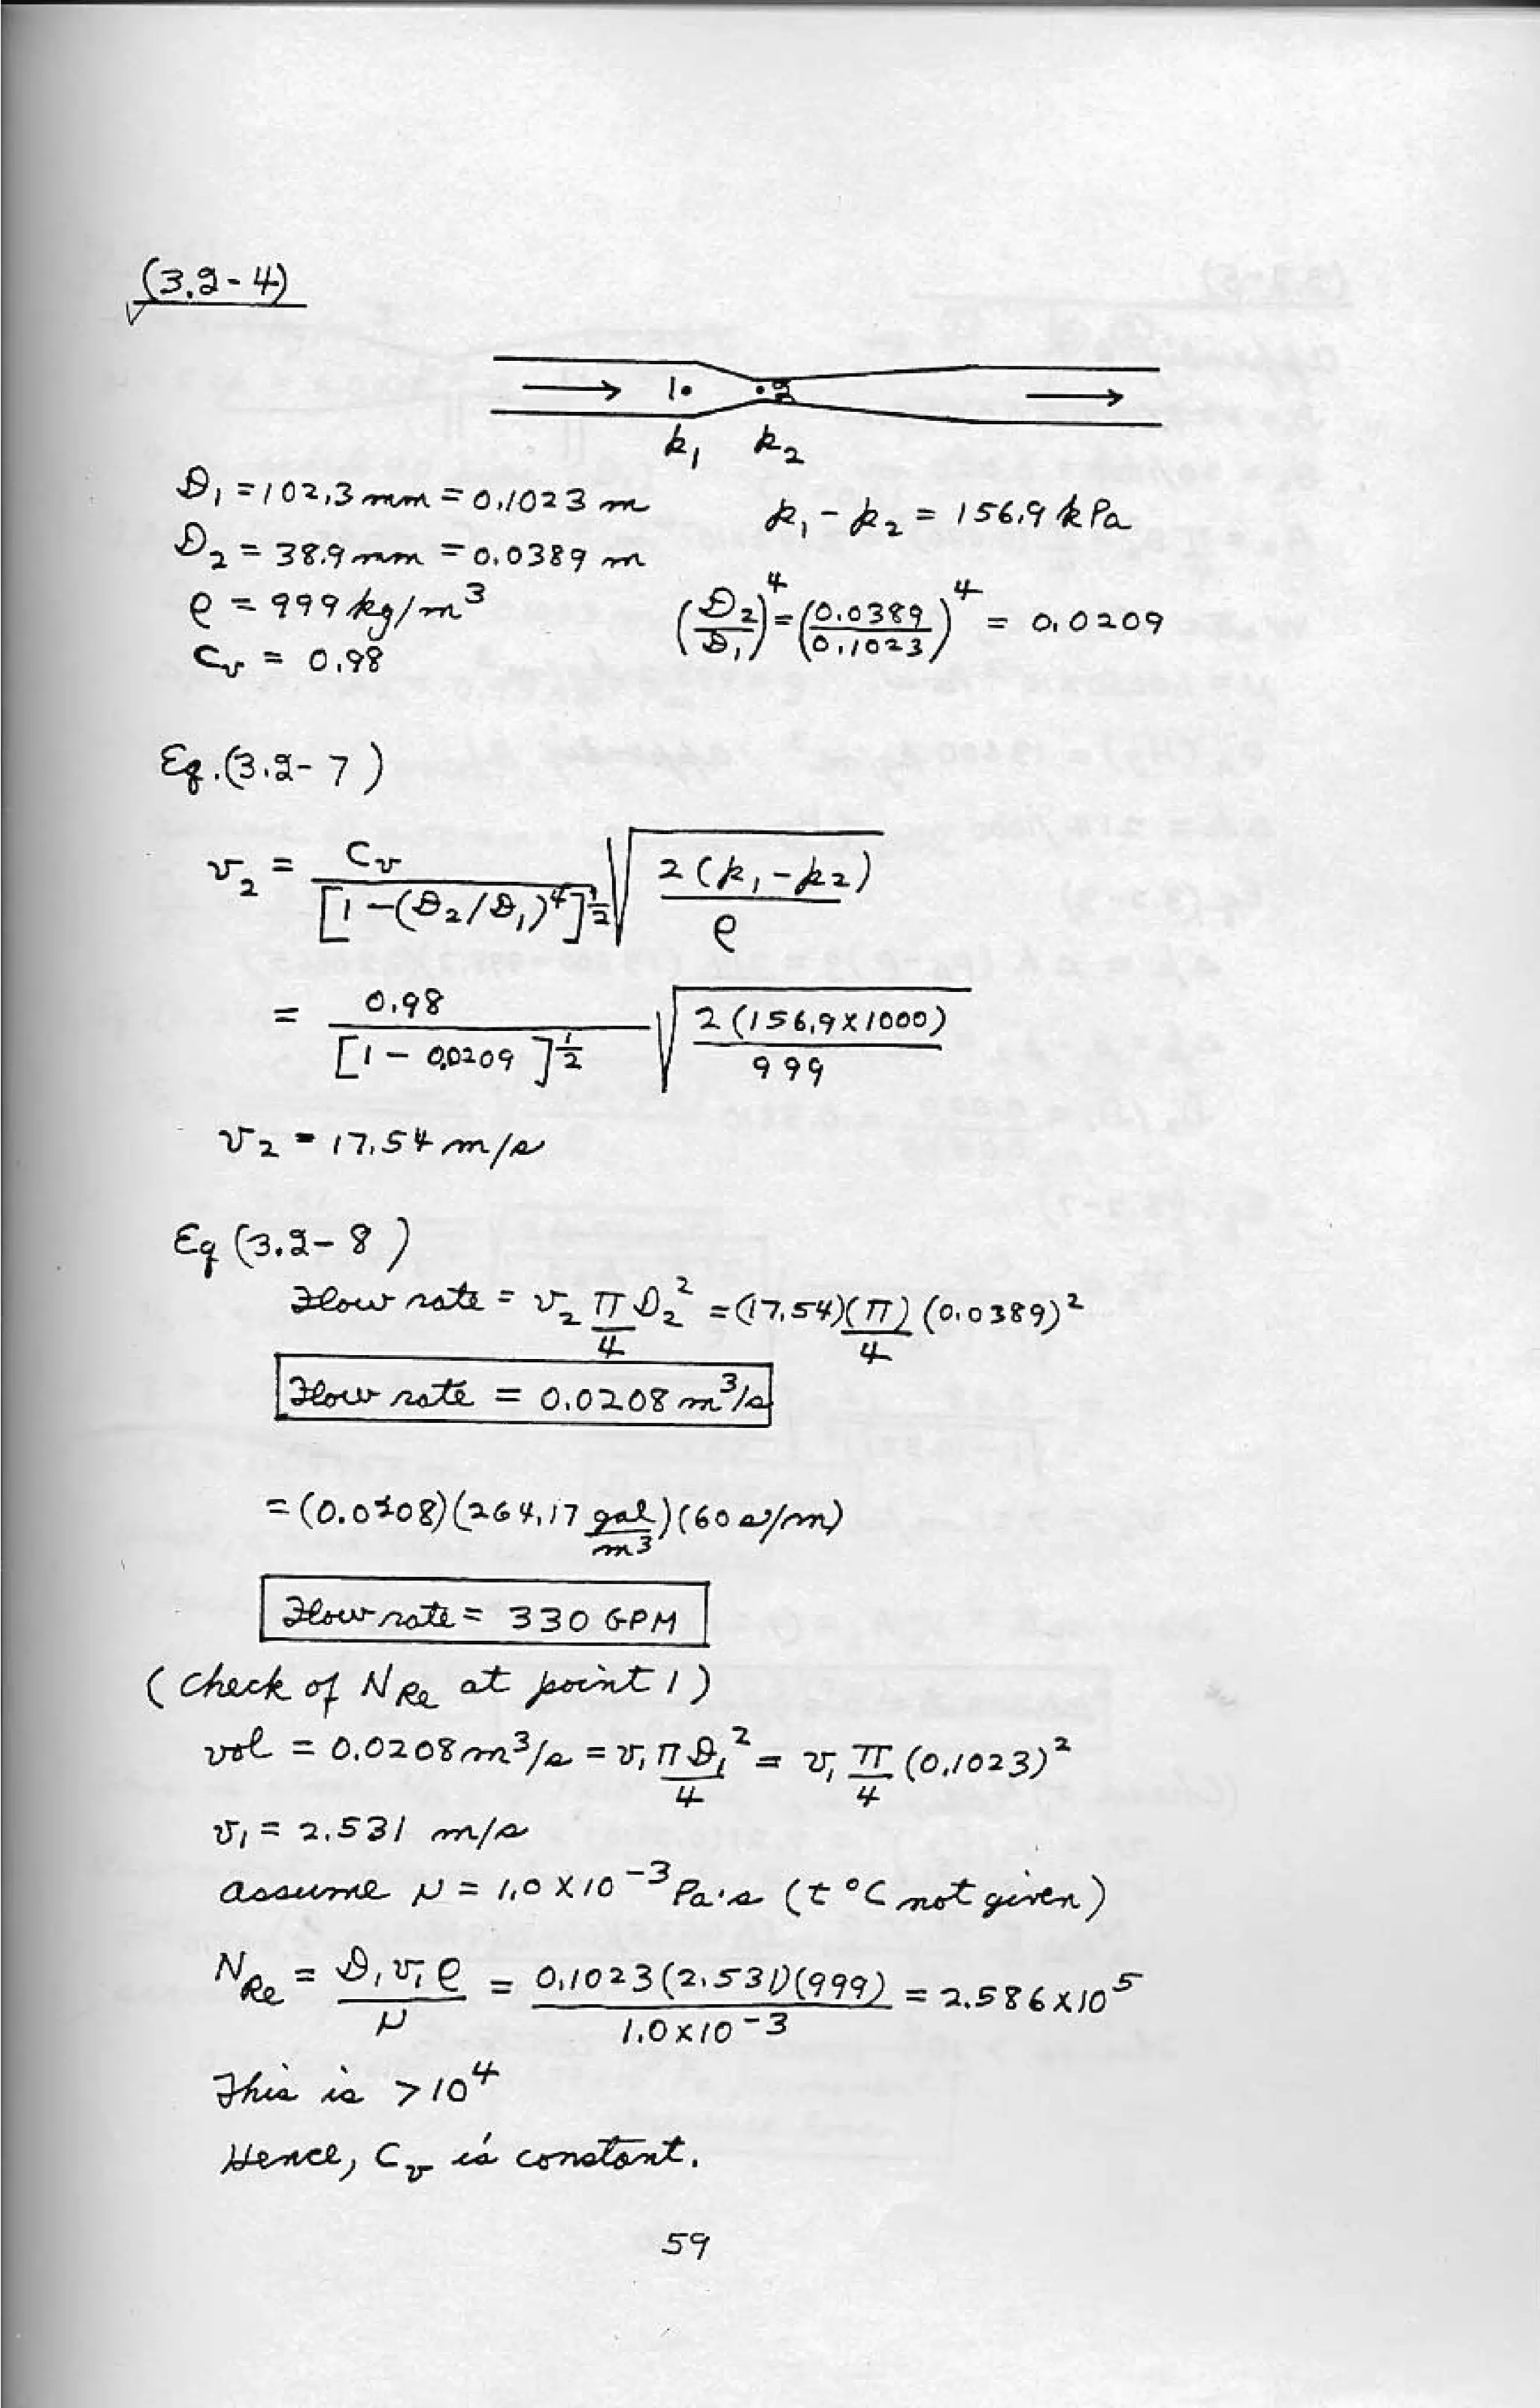 (3.2-4)
1. .2
p₁ p₂
D₁ = 102.3 mm = 0.1023 m
p₁ - p₂ = 156.9 kPa
D₂ = 38.9 mm = 0.0389 m
ρ = 999 kg/m³
(D₂/D₁)⁴ = (0.0389/0.1023)⁴ = 0.0209
Cv = 0.98
Eq. (3.2-7)
v₂ = Cv/[1-(D₂/D₁)⁴]^½ √(2(p₁-p₂)/ρ)
= 0.98/[1 - 0.0209]^½ √(2(156.9×1000)/999)
v₂ = 17.54 m/s
Eq (3.2-8)
Flow rate = v₂ π/4 D₂² = (17.54)(π)/4 (0.0389)²
Flow rate = 0.0208 m³/s
= (0.0208)(264.17 gal/m³)(60 s/m)
Flow rate = 330 GPM
(Check of NRe at point 1)
vol = 0.0208 m³/s = v₁ πD₁²/4 = v₁ π/4 (0.1023)²
v₁ = 2.531 m/s
assume μ = 1.0 × 10⁻³ Pa·s (t °C not given)
NRe = D₁v₁ρ/μ = 0.1023(2.531)(999)/1.0×10⁻³ = 2.586×10⁵
This is > 10⁴
Hence, Cv is constant.
59